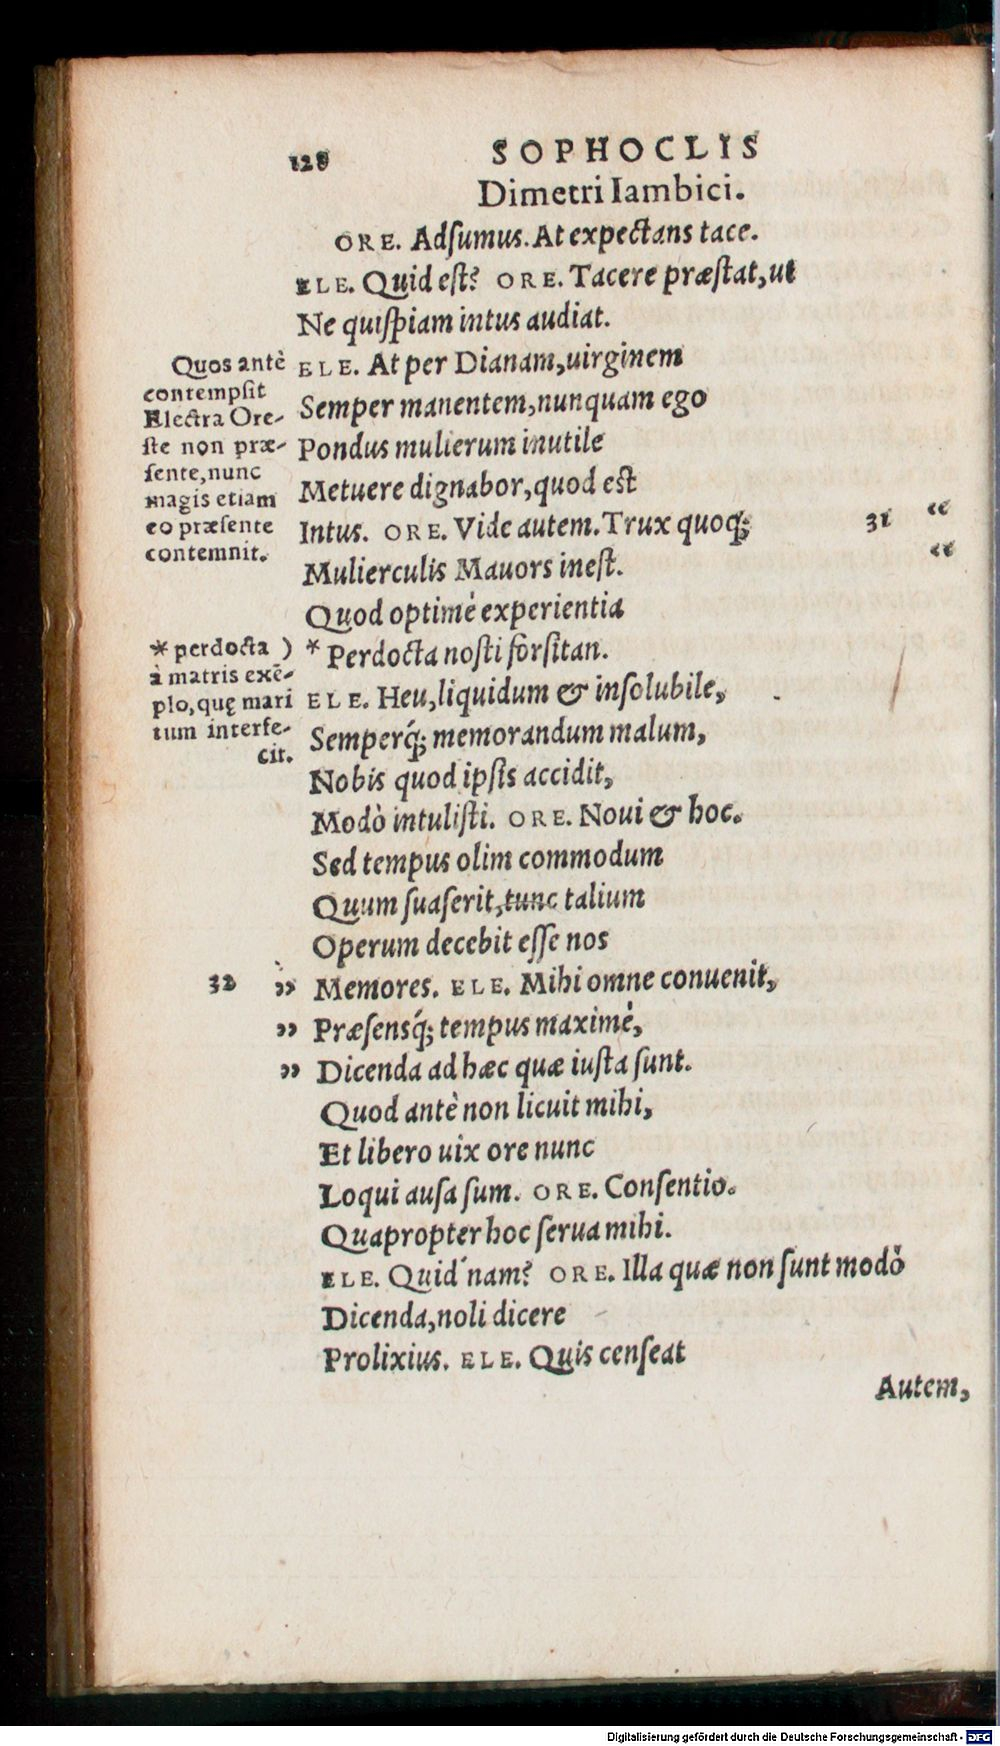 128 SOPHOCLIS
Dimetri Iambici.
ORE. Adſumus. At expectans tace.
ELE. Quid eſt? ORE. Tacere præſtat, ut
Ne quiſpiam intus audiat.
ELE. At per Dianam, uirginem
Semper manentem, nunquam ego
Pondus mulierum inutile
Metuere dignabor, quod est
Intus. ORE. Vide autem. Trux quoq́;
Mulierculis Mauors ineſt.
Quod optimè experientia
* Perdocta noſti forſitan.
ELE. Heu, liquidum & inſolubile,
Semperq́; memorandum malum,
Nobis quod ipſis accidit,
Modò intuliſti. ORE. Noui & hoc.
Sed tempus olim commodum
Quum ſuaſerit, tunc talium
Operum decebit eſſe nos
Memores. ELE. Mihi omne conuenit,
Præſensq́; tempus maximè,
Dicenda ad hæc quæ iuſta ſunt.
Quod antè non licuit mihi,
Et libero uix ore nunc
Loqui auſa ſum. ORE. Conſentio.
Quapropter hoc ſerua mihi.
ELE. Quid´nam? ORE. Illa quæ non ſunt modò
Dicenda, noli dicere
Prolixius. ELE. Quis cenſeat
Autem,
Quos antè
contempſit
Electra Ore-
ſte non præ-
ſente, nunc
magis etiam
eo præſente
contemnit.
* perdocta )
à matris exē-
plo, quę mari
tum interfe-
cit.
31 “
“
32 ”
”
”
Digitalisierung gefördert durch die Deutsche Forschungsgemeinschaft - DFG